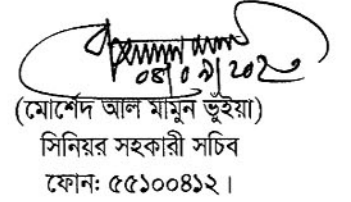 ০৪/০৯/২০২০
(মোর্শেদ আল মামুন ভূঁইয়া)
সিনিয়র সহকারী সচিব
ফোনঃ ৫৫১০০৪১২।